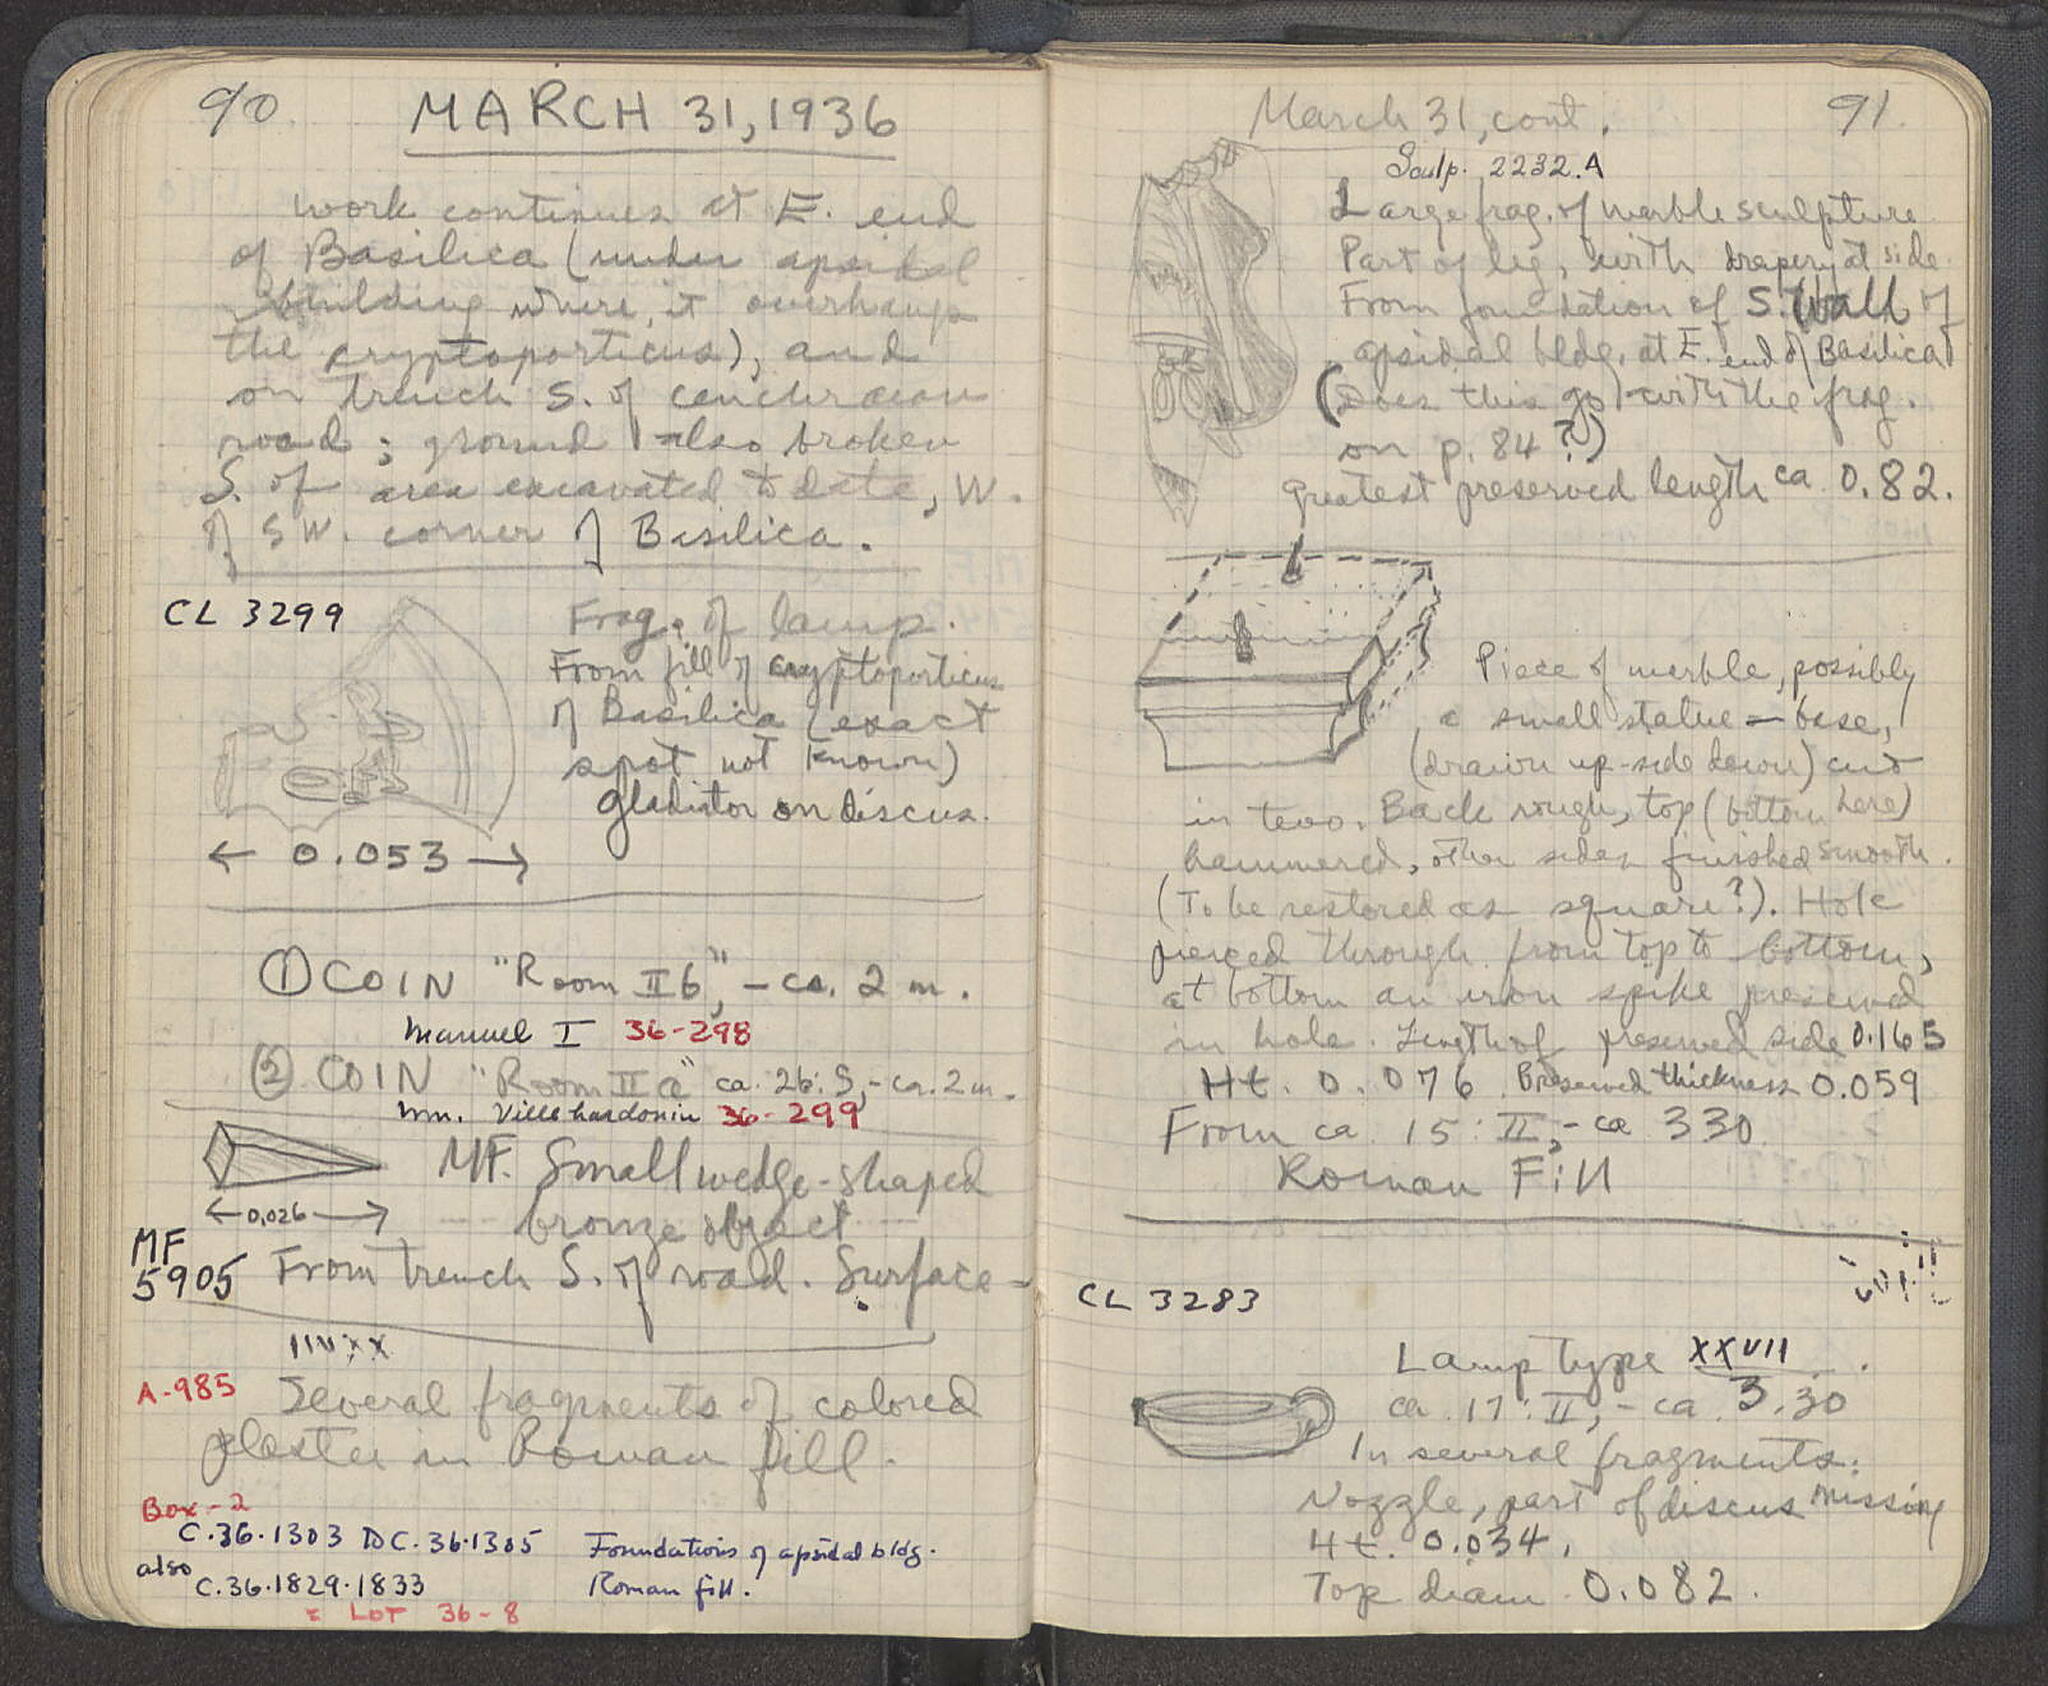 90
MARCH 31, 1936
work continues at E. end
of Basilica (under apsidal
building where it overhangs
the cryptoporticus), and
on trench S. of cenchraean
road; ground also broken
S. of area excavated to date, W.
of SW. corner of Basilica.
CL 3299
Frag. of lamp.
From fill of cryptoporticus
of Basilica (exact
spot not known)
Gladiator on discus.
← 0.053 →
① COIN "Room II b", - ca. 2 m.
Manuel I 36-298
② COIN "Room II a" ca. 26: S, - ca. 2 m.
Wm. Villehardouin 36-299
MF. Small wedge-shaped
bronze object
← 0,026 →
MF
5905
From trench S. of road. Surface -
A-985
Several fragments of colored
plaster in Roman fill.
Box-2
C.36.1303 to C.36.1305 Foundations of apsidal bldg.
also
C.36.1829-1833 Roman fill.
= LOT 36-8
March 31, cont.
91
Sculp. 2232.A
Large frag. of marble sculpture
Part of leg, with drapery at side
From foundation of S. Wall of
apsidal bldg. at E. end of Basilica
(Does this go with the frag.
on p. 84?)
Greatest preserved length ca 0.82.
Piece of marble, possibly
a small statue-base,
(drawn up-side down) cut
in two. Back rough, top (bottom here)
hammered, other sides finished smooth.
(To be restored as square?). Hole
pierced through from top to bottom,
at bottom an iron spike preserved
in hole. Length of preserved side 0.165
Ht. 0.076. Preserved thickness 0.059
From ca 15: II, - ca 330
Roman Fill
CL 3283
Lamp type XXVII.
ca. 17: II, - ca. 3.30
In several fragments.
Nozzle, part of discus missing
Ht. 0.034.
Top diam. 0.082.